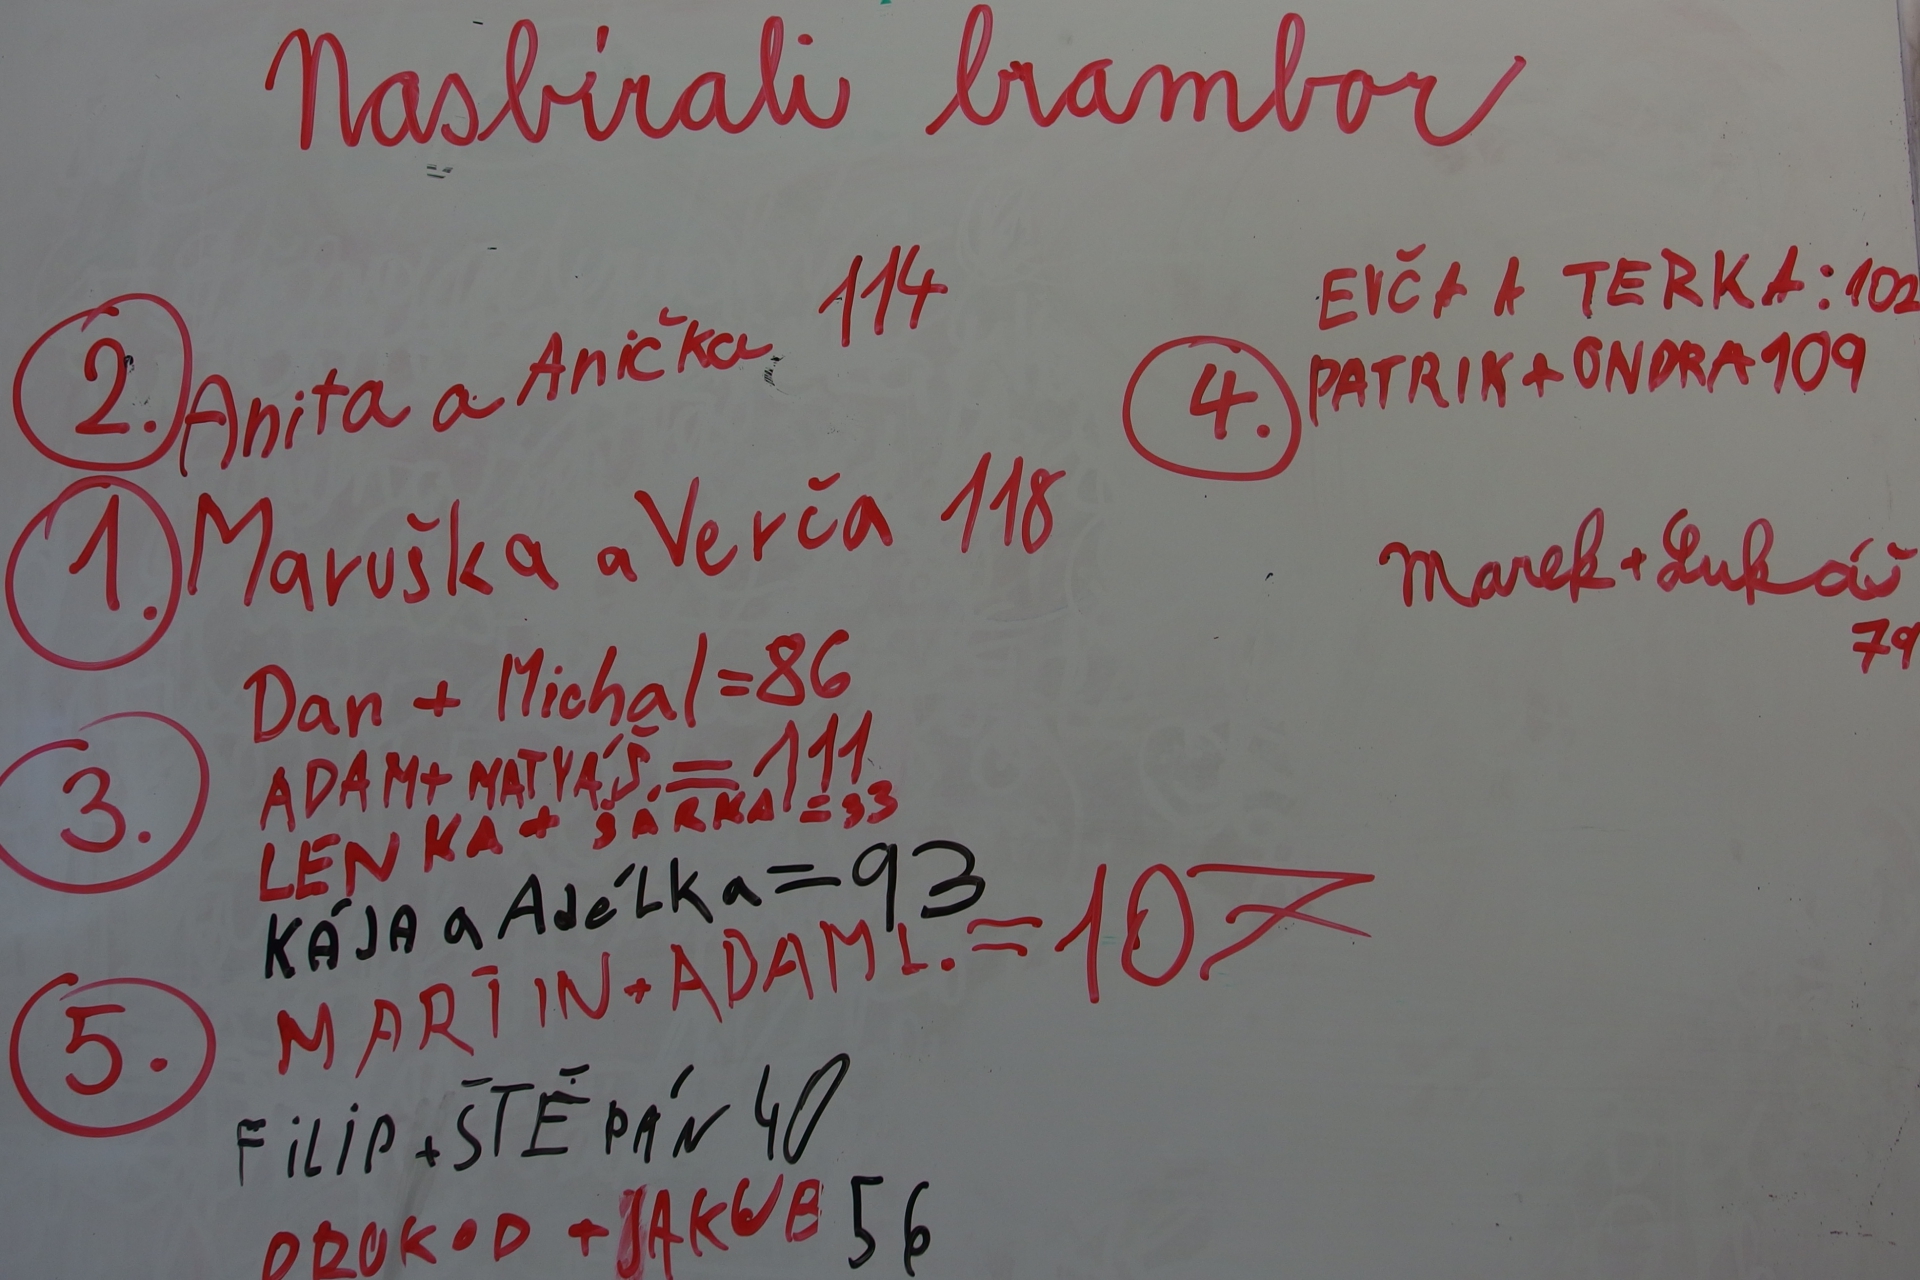 Nasbírali brambor
2. Anita a Anička 114
1. Maruška a Verča 118
Dan + Michal = 86
3. ADAM + MATYÁŠ. = 111
LENKA + ŠÁRKA = 33
KÁJA a Adélka = 93
5. MARTIN + ADAM L. = 107
FiLiP + ŠTĚPÁN 40
PROKOP + JAKUB 56
EVČA A TERKA: 102
4. PATRIK + ONDRA 109
Marek + Lukáš
79